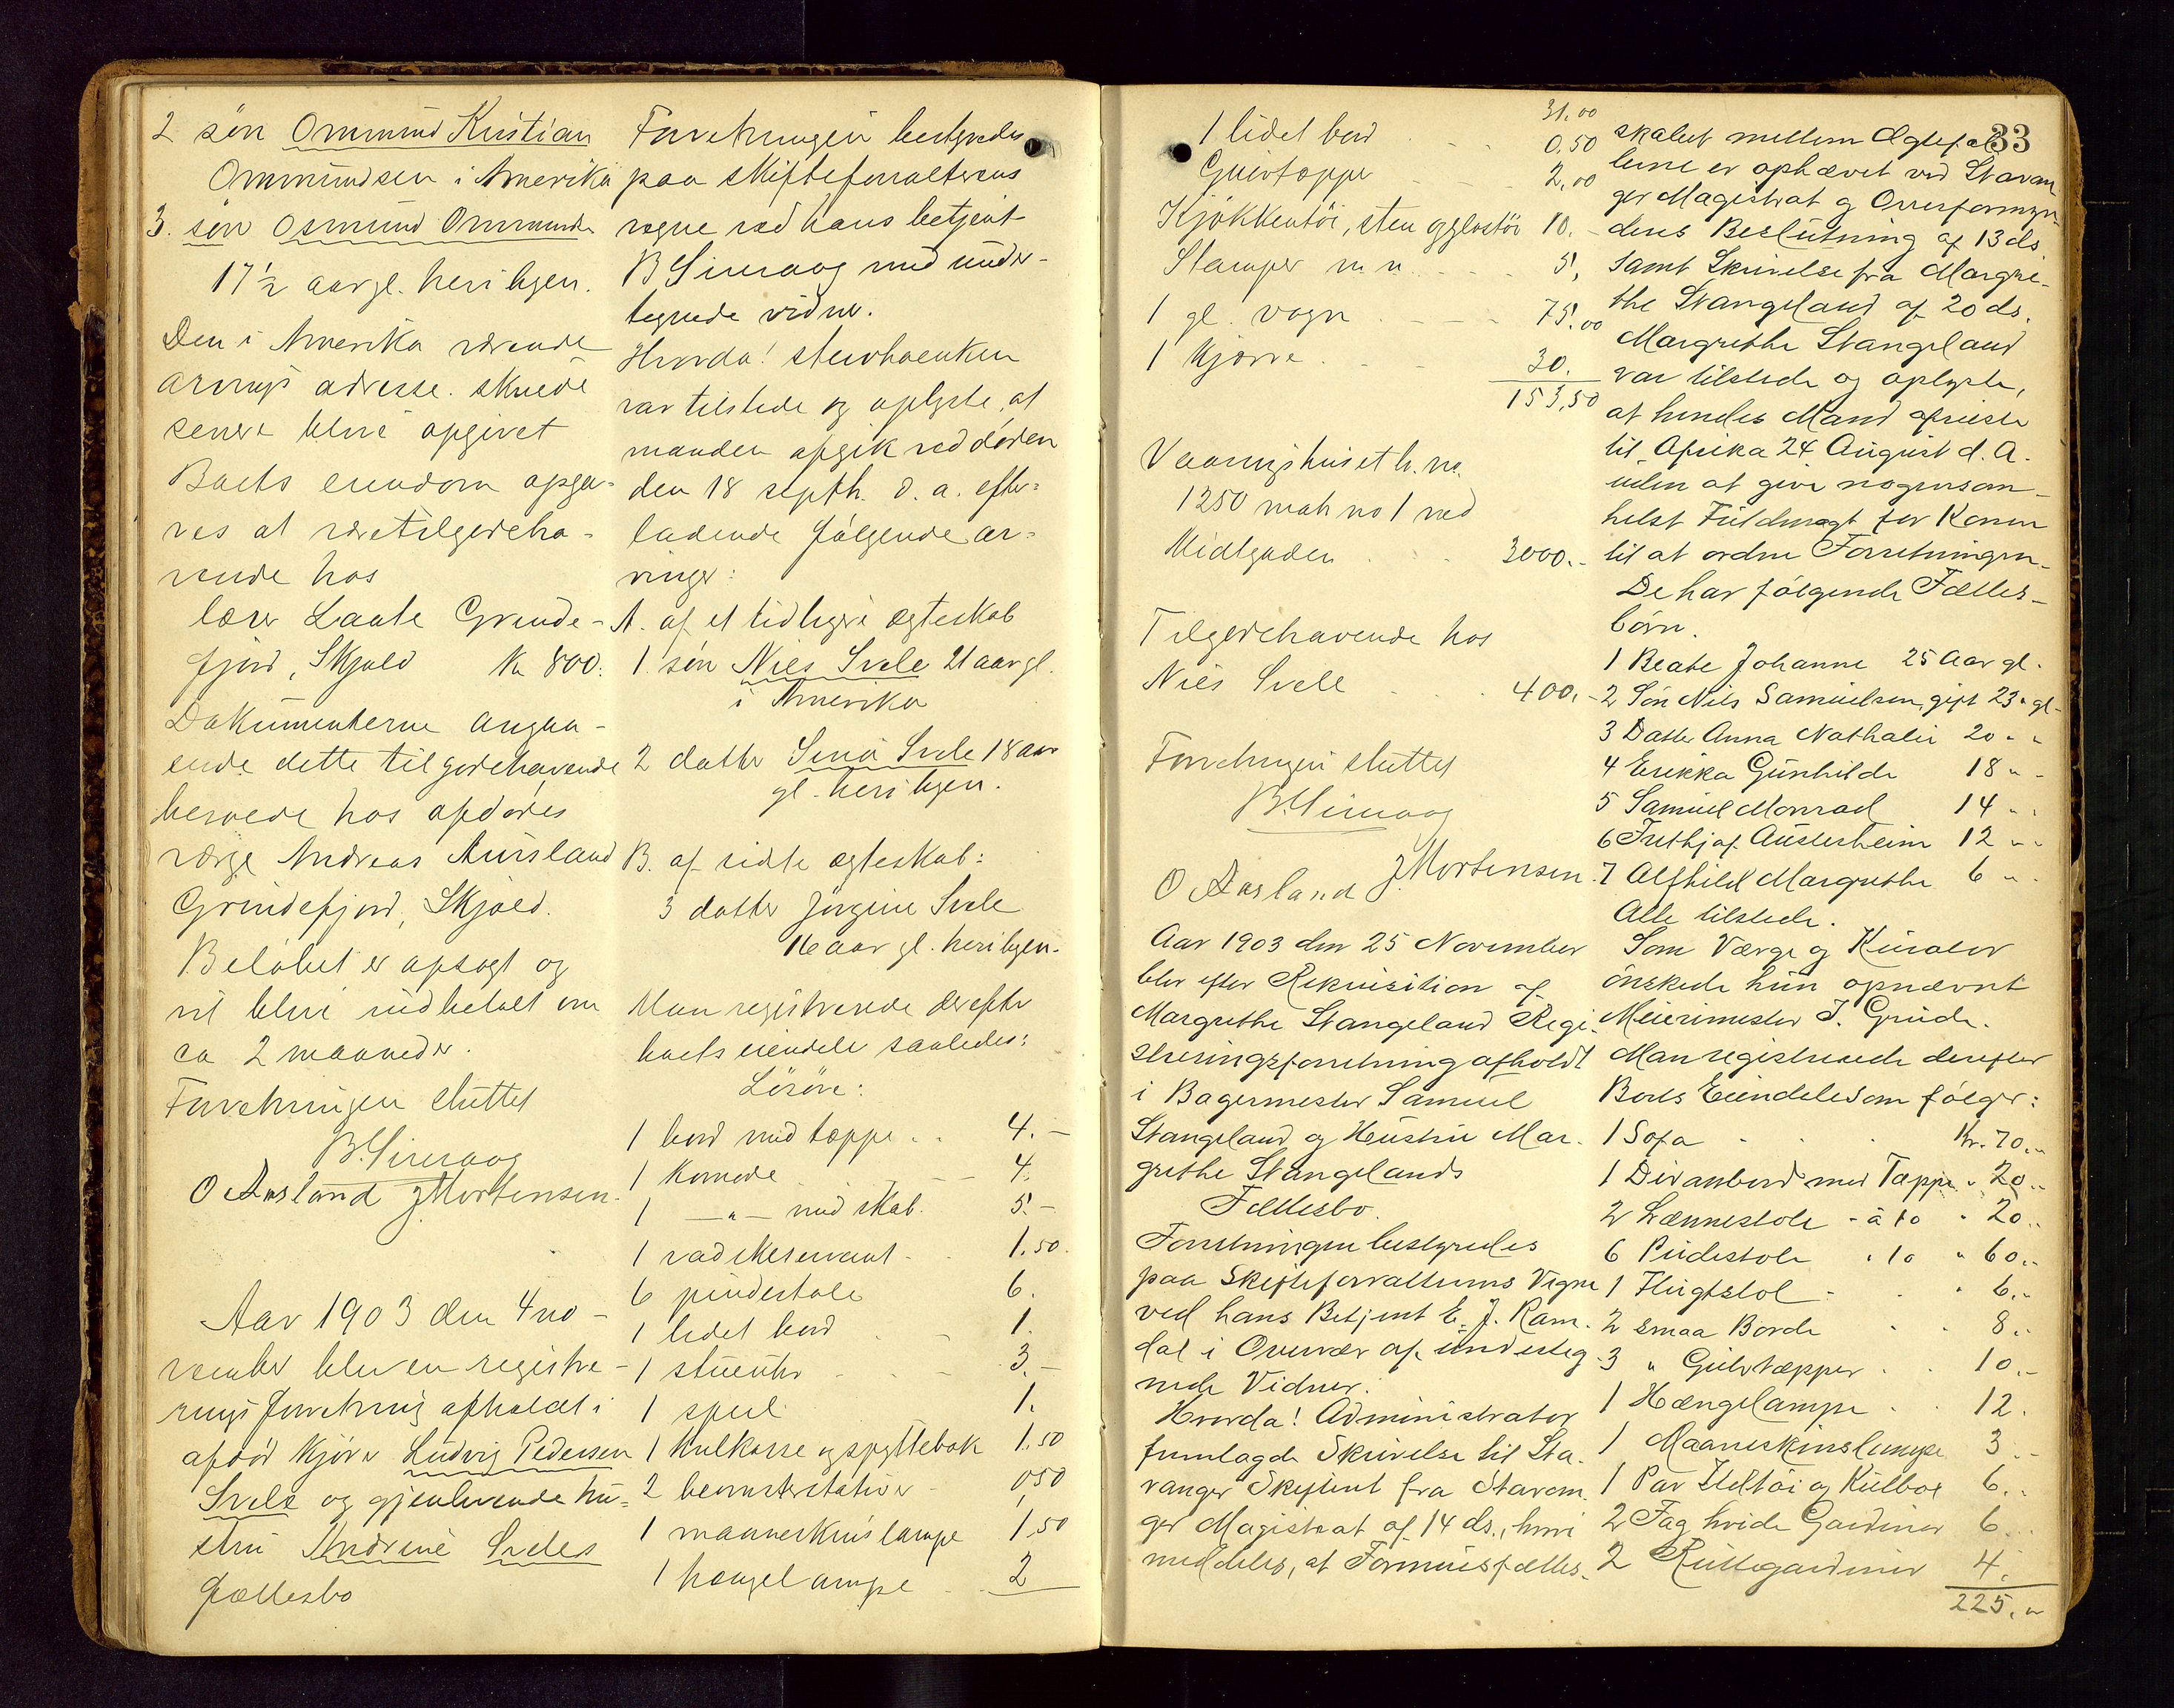 2 søn Ommund Kristian
Ommundsen i Amerika
3. søn Osmund Ommunds.
17½ aar gl. her i byen.
Den i Amerika værende
arvings adresse skulde
senere blive opgivet
Boets eiendom opga-
ves at være tilgodeha-
vende hos
lærer Laate Grinde-
fjord, Skjold Kr 800.
Dokumenterne angaa-
ende dette tilgodehavende
beroede hos afdødes
værge Andreas Aursland
Grindefjord, Skjold.
Beløbet er opsagt og
vil blive indbetalt om
ca 2 maaneder.
Forretningen sluttet
B. Simaag
O Aasland J Mortensen.
Aar 1903 den 4 no-
vember blev en registre-
rings forretning afholdt i
afdød kjører Ludvig Pedersen
Svele og gjenlevende hu-
stru Andrine Sveles
fællesbo
Forretningen bestyredes
paa skifteforvalterens
vegne ved hans betjent
B Simaag med under-
tegnede vidner.
Hvorda! Stervboenken
var tilstede og oplyste, at
manden afgik ved døden
den 18 septbr. d. a. efter-
ladende følgende ar-
vinger:
A. af et tidligere ægteskab
1. søn Nils Svele 21 aar gl.
i Amerika
2 datter Sina Svele 18 aar
gl. her i byen.
B. af sidste ægteskab:
3 datter Jørgine Svele
16 aar gl. her i byen.
Man registrerede derefter
boets eiendele saaledes:
Løsøre:
1 bord med tæppe . . 4.–
1 komode 4.
1 –"– med skab 5.–
1 vaskeservant 1.50.
6 pindestole 6.
1 lidet bord 1.
1 stueuhr 3.–
1 speil 1.
1 kulkasse og spyttebak 1.50
2 blomsterstativer 0,50
1 maaneskinslampe 1,50
1 hængelampe 2
33
31.00
1 lidet bord . . . 0.50
Gulvtæpper 2.00
Kjøkkentøi, sten og glastøi 10.–
Stamper m. m. 5,
1 gl. vogn 75.00
1 kjærre 30.
153,50
Vaaningshuset br. no.
1250 matr no 1 ved
Midtgaden 3000.–
Tilgodehavende hos
Nils Svele 400.–
Forretningen sluttet
B. Simaag
O Aasland J Mortensen.
Aar 1903 den 25 November
blev efter Rekvisition af
Margrethe Stangeland Regi-
streringsforretning afholdt
i Bagermester Samuel
Stangeland og Hustru Mar-
grethe Stangelands
Fællesbo.
Forretningen bestyredes
paa Skifteforvalterens Vegne
ved hans Betjent E. J. Ram-
dal i Overvær af underteg-
nede Vidner.
Hvorda! Administrator
fremlagde Skrivelse til Sta-
vanger Skifteret fra Stavan-
ger Magistrat af 14 ds., hvori
meddeles, at Formuesfælles-
skabet mellem Ægtefol-
kene er ophævet ved Stavan
ger Magistrat og Overformyn-
deris Beslutning af 13 ds
samt Skrivelse fra Margre-
the Stangeland af 20 ds.
Margrethe Stangeland
var tilstede og oplyste,
at hendes Mand afreiste
til Afrika 24 August d. A.
uden at give nogensom-
helst Fuldmagt for Konen
til at ordne Forretningen.
De har følgende Fælles-
børn.
1 Beate Johanne 25 Aar gl.
2 Søn Nils Samuelsen, gift 23 " gl.
3 Datter Anna Nathalie 20 " "
4 Erikka Gunhilde 18 " "
5 Samuel Monrad 14 " "
6 Frithjof Austerheim 12 " "
7 Alfhild Margrethe 6 " "
Alle tilstede.
Som Værge og Kurator
ønskede hun opnævnt
Meierimester J. Grude.
Man registrerede derefter
Boets Eiendele som følger:
1 Sofa Kr. 70.."
1 Divanbord med Tæppe " 20..
2 Lænnestole – à 10 " 20..
6 Pindestole " 10 " 60..
1 Flugtstol " 6..
2 smaa Borde 8..
3 " Gulvtæpper 10.–
1 Hængelampe 12.
1 Maaneskinslampe 3.–
1 Par Ildtøi og Kulbox 6..
2 Fag hvide Gardiner 6..
2 Rullegardiner 4.
225."